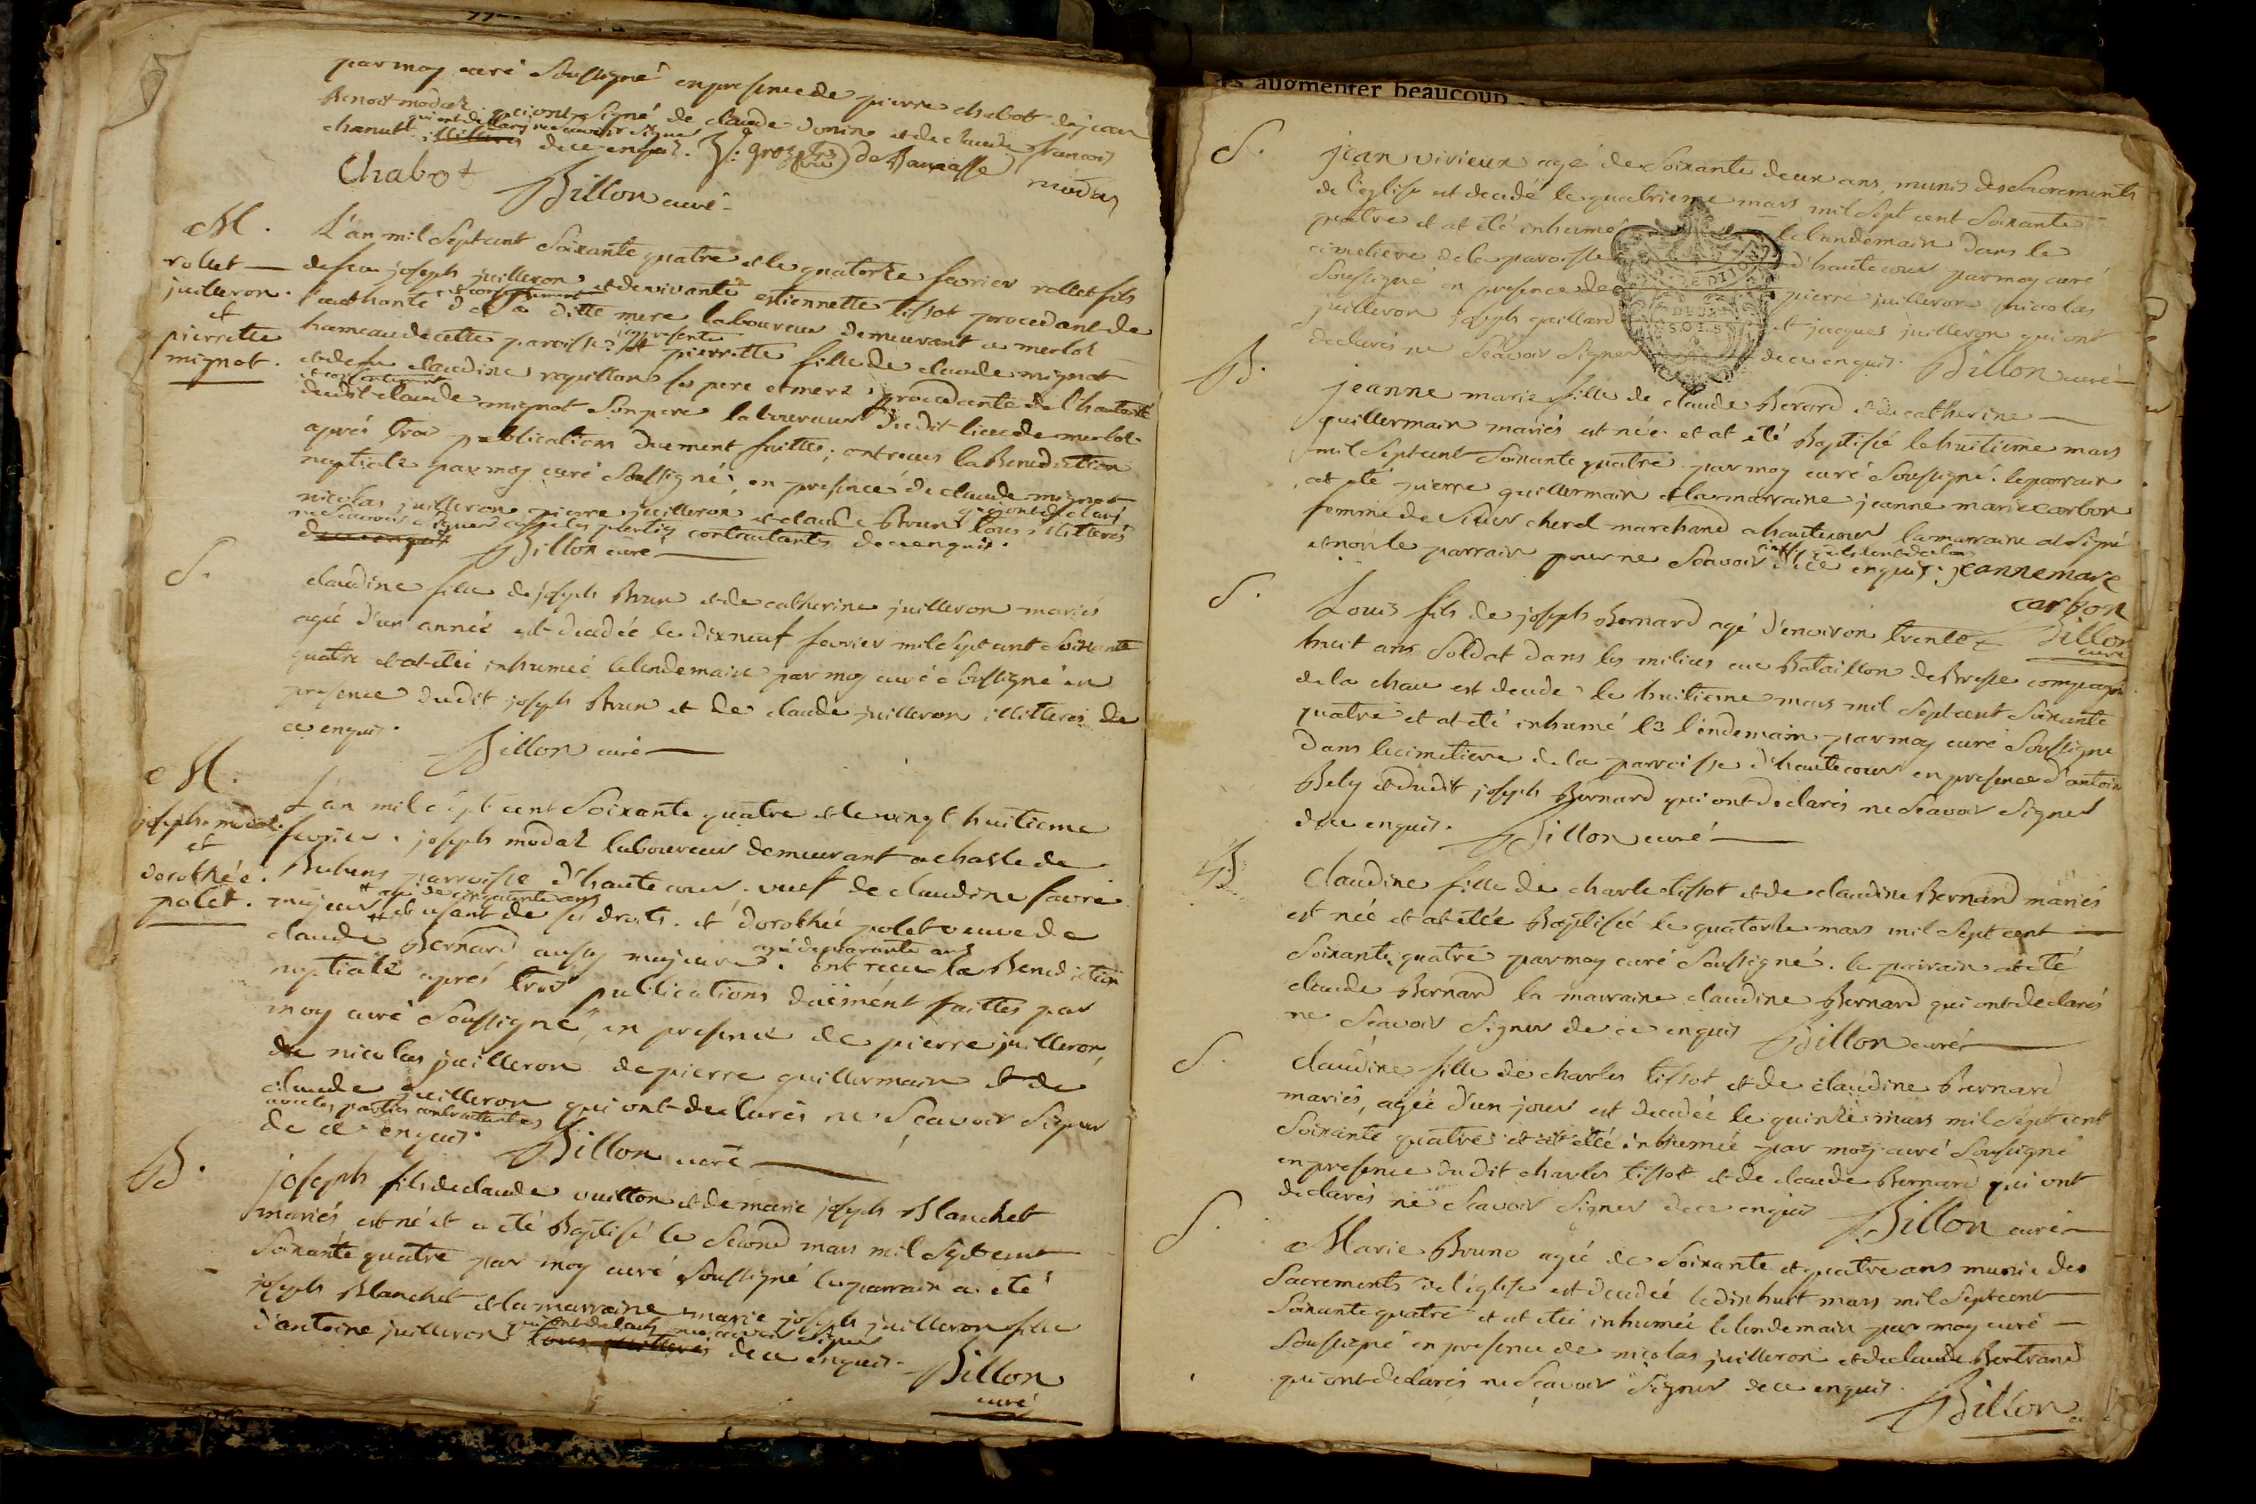 par moy curé soussigné en presence de pierre chabot de jean
Benoit modaz qui ont signé de claude donin et de claude françois
qui ont declarés ne scavoir signer
chanut illitteres de ce enquis. de Banasse modas
Chabot Billon curé
M. L'an mil sept cent soixante quatre et le quatorze fevrier rollet fils
rollet de feu joseph juilleron et de vivante estiennette tissot procedant de
juilleron. l'authorité et consentement de sa ditte mere laboureur demeurant a merloz
et
pierrette hameau de cette paroisse icy presente et pierrette fille de claude mignot
mignot. et de claudine ses pere et mere, procedante de l'hautorité
et consentement
dudit claude mignot son pere laboureur dudit lieu de merloz.
aprés trois publications duement faittes, ont recus la Benediction
nuptiale par moy curé soussigné, en presence de claude mignot
nicolas juilleron pierre juilleron et claude Brun tous illitterés
qui ont declarés
ne scavoir signer avec les parties contractantes de ce enquis.
de ce enquis Billon curé
S. claudine fille de joseph Brun et de catherine juilleron mariés
agée d'un année est decedée le dix neuf fevrier mil sept cent soixante
quatre et at etée inhumée le lendemain par moy curé soussigné en
presence dudit joseph Brun et de claude juilleron illitterés de
ce enquis. Billon curé
M. L'an mil sept cent soixante quatre et le vingt huitieme
joseph modaz fevrier. joseph modaz laboureur demeurant a chasle de
et
dorothée. Bubens parroisse d'hautecour. veuf de claudine favre
agé de cinquante ans
polet. majeur et usant de ses droits. et dorothée polet veuve de
claude Bernard aussy majeure agée de quarante ans. ont recu la Benediction
nuptiale aprés trois publications duëment faittes par
moy curé soussigné, en presence de pierre juilleron,
de nicolas juilleron de pierre guillermain et de
claude juilleron qui ont declarés ne scavoir signer
avec les parties contractantes
de ce enquis. Billon curé
B. joseph fils de claude vuitton et de marie joseph Blanchet
mariés est né et a eté Baptisé le second mars mil sept cent
soixante quatre par moy curé soussigné le parrain a eté
joseph Blanchet et la marraine marie joseph juilleron fille
qui ont declarés ne scavoir signer
d'antoine juilleron tous illitteres de ce enquis. Billon
curé
es augmenter beaucoup
S. jean vivieux agé de soixante deux ans, munis des sacrements
de l'eglise est decedé le quatrieme mars mil sept cent soixante
quatre et at eté inhumé le lendemain dans le
cimetiere de la paroisse d'hautecour par moy curé
soussigné en presence de pierre juilleron nicolas
juilleron joseph guillard et jacques juilleron qui ont
declarés ne scavoir signer de ce enquis. Billon curé
DIJON
SOLS
B. jeanne marie fille de claude Berard et de catherine
guillermain mariés est née et at eté Baptisée le huitieme mars
mil sept cent soixante quatre par moy curé soussigné. le parrain
at eté pierre guillermain et la marraine jeanne marie carbon
femme de sieur cherel marchand a hautecour la marraine at signé
et non le parrain pour ne scavoir de ce enquis. jeannemare
carbon
Billon
curé
S. Louis fils de joseph Bernard agé d'environ trente
huit ans soldat dans les milices au Bataillon de Bresse compagnie
de la chau est decedé le huitieme mars mil sept cent soixante
quatre et at eté inhumé le lendemain par moy curé soussigné
dans le cimetiere de la parroisse d'hautecour en presence d'antoine
Bely et dudit joseph Bernard qui ont declarés ne scavoir signer
de ce enquis. Billon curé
B. Claudine fille de charle tissot et de claudine Bernard mariés
est née et at etée Baptisée le quatorze mars mil sept cent
soixante quatre par moy curé soussigné. le parrain at eté
claude Bernard la marraine claudine Bernard qui ont declarés
ne scavoir signer de ce enquis Billon curé
S. claudine fille de charles tissot et de claudine Bernard
mariés, agée d'un jour est decedée le quinze mars mil sept cent
soixante quatre et at etée inhumée par moy curé soussigné
en presence dudit charles tissot et de claude Bernard qui ont
declarés ne scavoir signer de ce enquis Billon curé
S. Marie Brune agée de soixante et quatre ans munie des
sacrements de l'église est decedée le dix huit mars mil sept cent
soixante quatre et at etée inhumée le lendemain par moy curé
soussigné en presence de nicolas juilleron et de claude Bertrand
qui ont declarés ne scavoir signer de ce enquis.
Billon